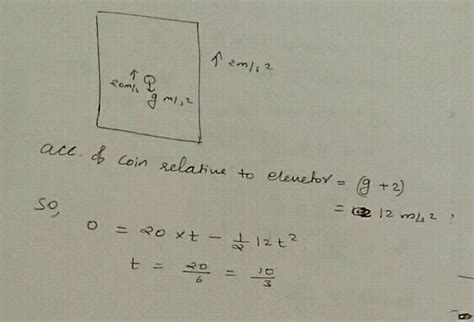 ↑ 2m/s2
20m/s ↑
g m/s2
acc. of coin relative to elevetor = (g + 2)
= 12 m/s2,
so,
0 = 20 × t − 1/2 12t²
t = 20/6 = 10/3